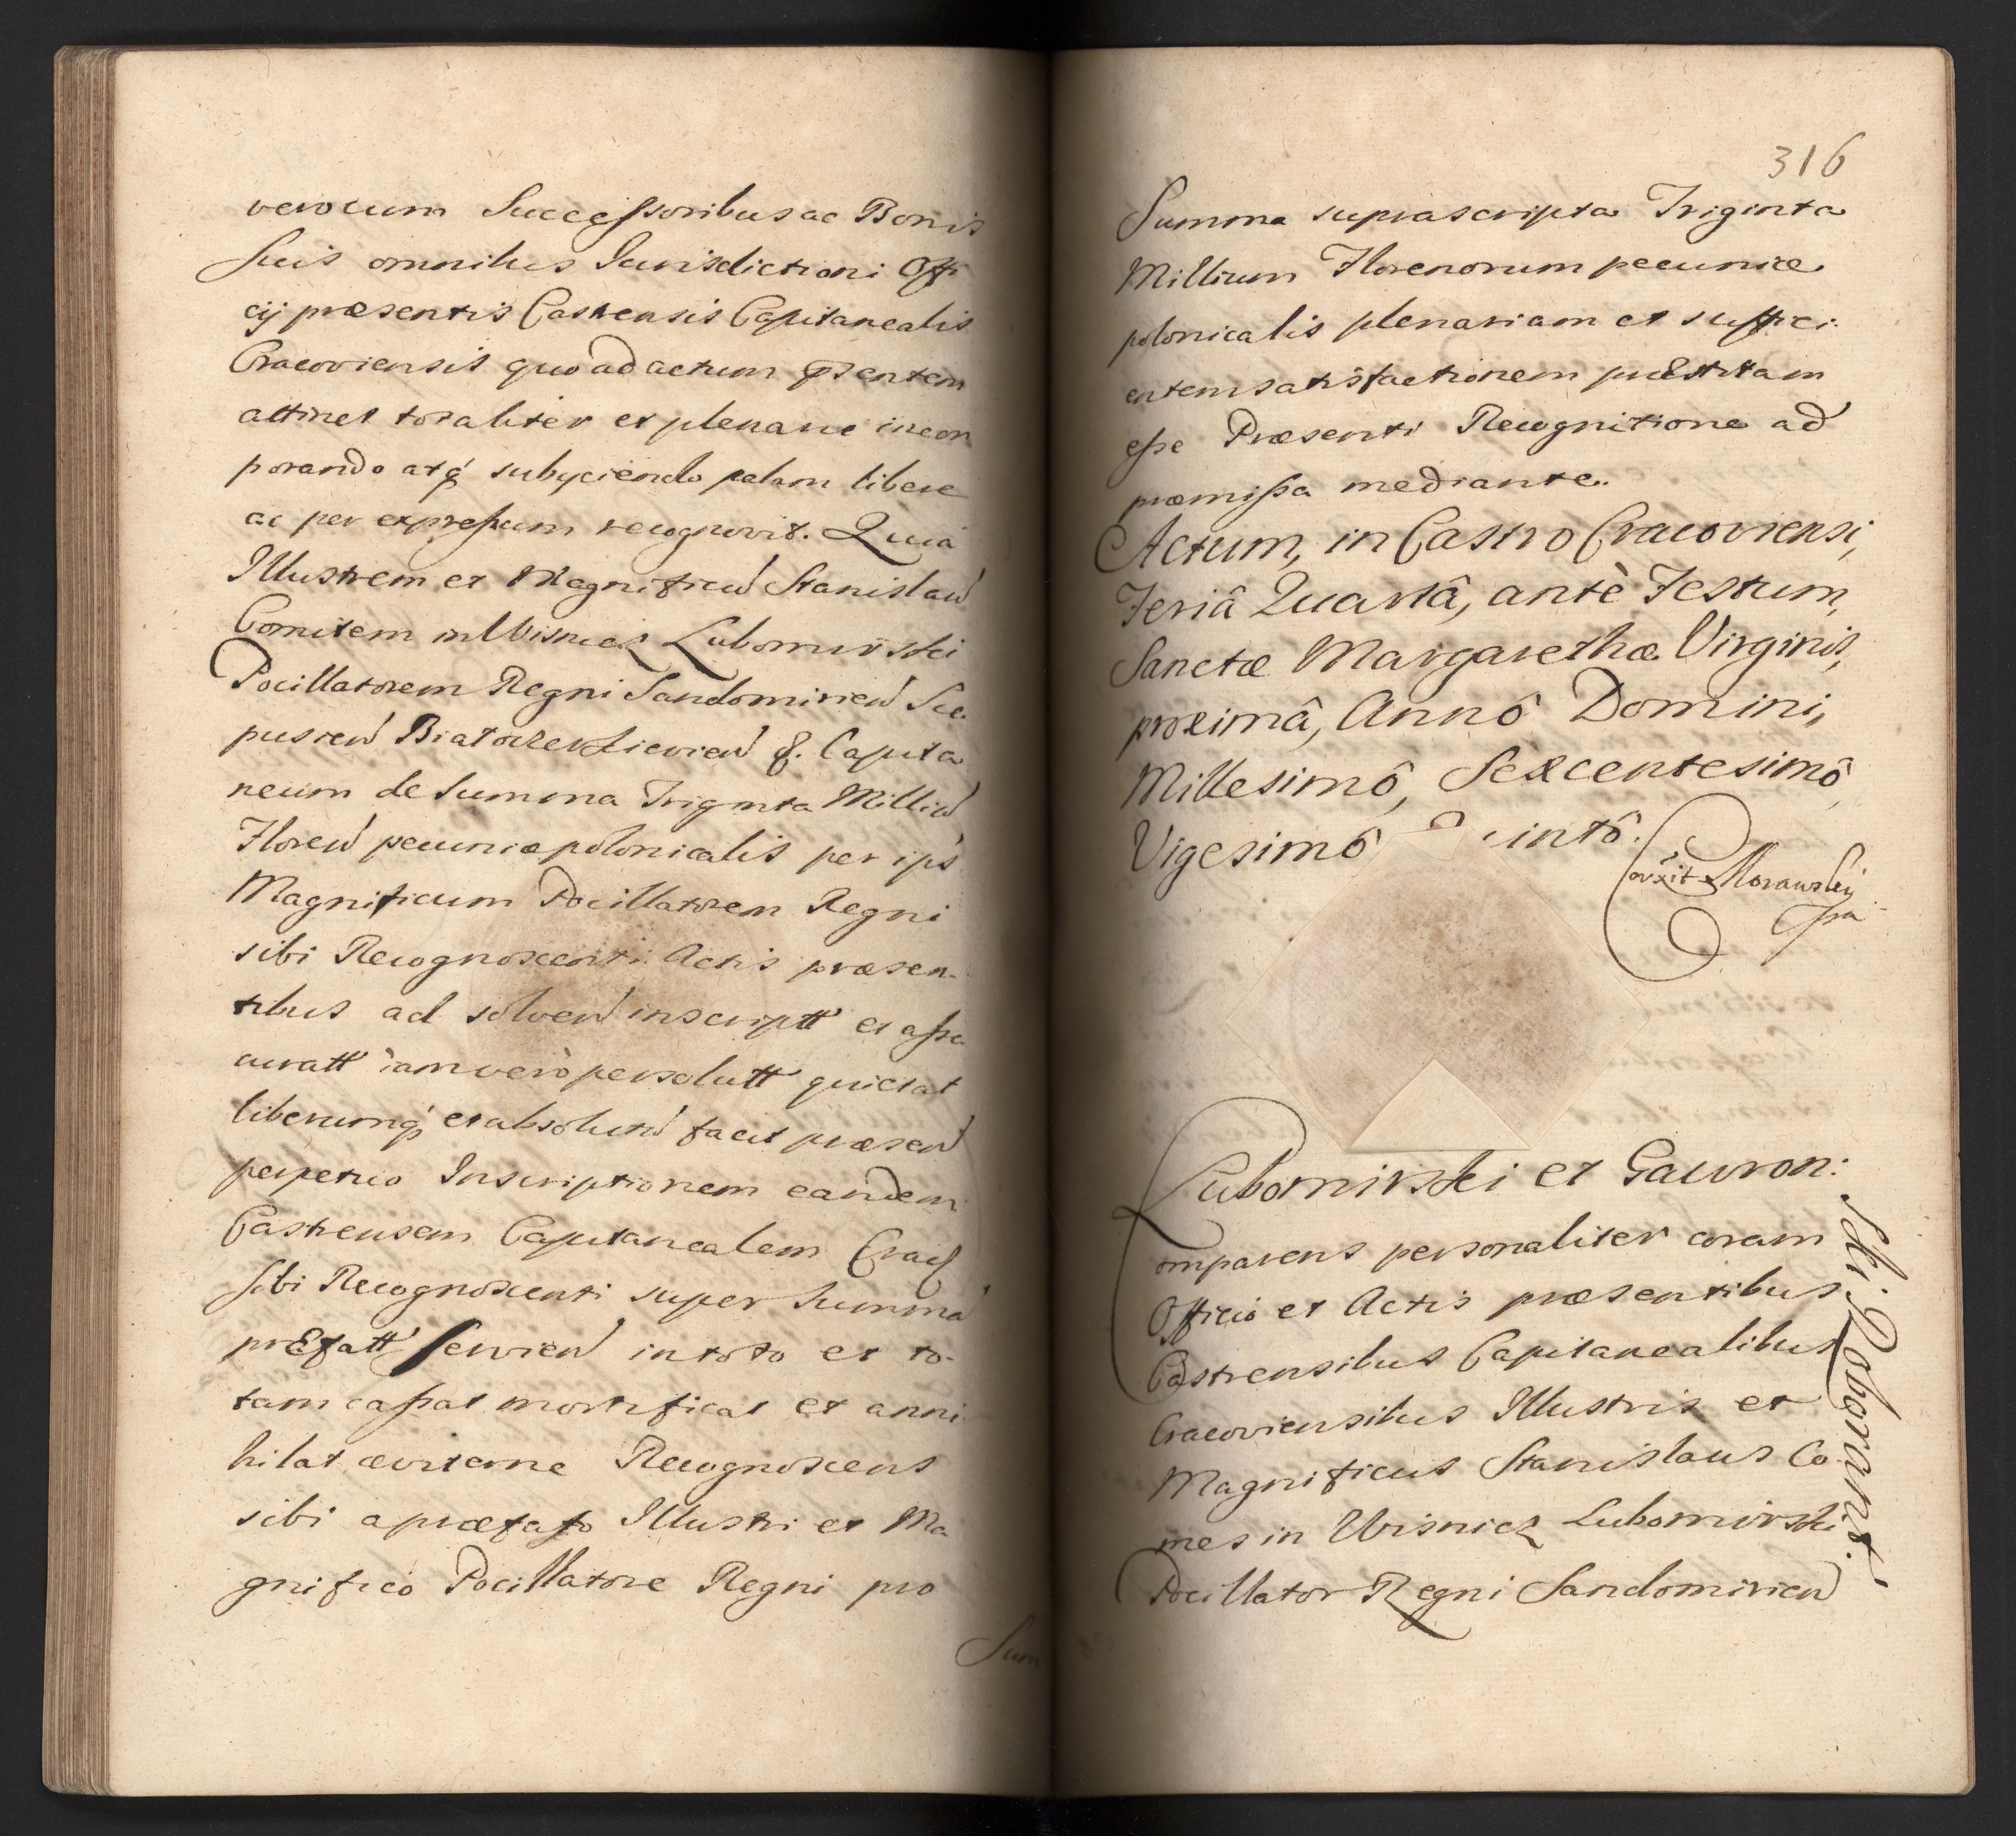 vero cum Successoribus ac Bonis
Suis omnibus Jurisdictioni Offi
cij præsentis Castrensis Capitanealis
Cracoviensis quo ad actum præsentem
attinet totaliter et plenarie incor
porando atq subyciendo palam libere
ac per expressum recognovit. Quia
Illustrem et Magnificu Stanislau
Comitem in Wisnicz Lubomirski
Pocillatorem Regni Sandomirien Sce
pusien Biatocerkievien &. Capita
neum de Summa Triginta Milliu
Floren pecuniæ polonicalis per ips
Magnificum Pocillatorem Regni
sibi Recognoscenti Actis præsen-
tibus ad solven inscriptt et asse
curatt iam vero persolutt quietat
liberumq et absolutu facit præsen
perpetuo Inscriptionem eandem
Castrensem Capitanealem Crac
sibi Recognoscenti super Summa
præfatt Servien in toto et to-
tam cassat mortificat et anni
hilat æviterne Recognoscens
sibi a præfato Illustri et Ma
gnifico Pocillatore Regni pro
Sum
316
Summa suprascripta Triginta
Millium Florenorum pecuniæ
polonicalis plenariam et suffici:
entem satisfactionem præstitam
esse Præsenti Recognitione ad
præmissa mediante.
Actum, in Castro Cracoviensi,
Feriâ Quartâ, antè Festum,
Sanctæ Margarethæ Virginis,
proximâ, Annô Domini,
Millesimô, Sexcentesimô,
Vigesimô intô.
Morawskij
Lubomirski et Gawron:
ski Roborant.
Comparens personaliter coram
Officio et Actis præsentibus
Castrensibus Capitanealibus
Cracoviensibus Illustris et
Magnificus Stanislaus Co
mes in Wisnicz Lubomirski
Pocillator Regni Sandomirien